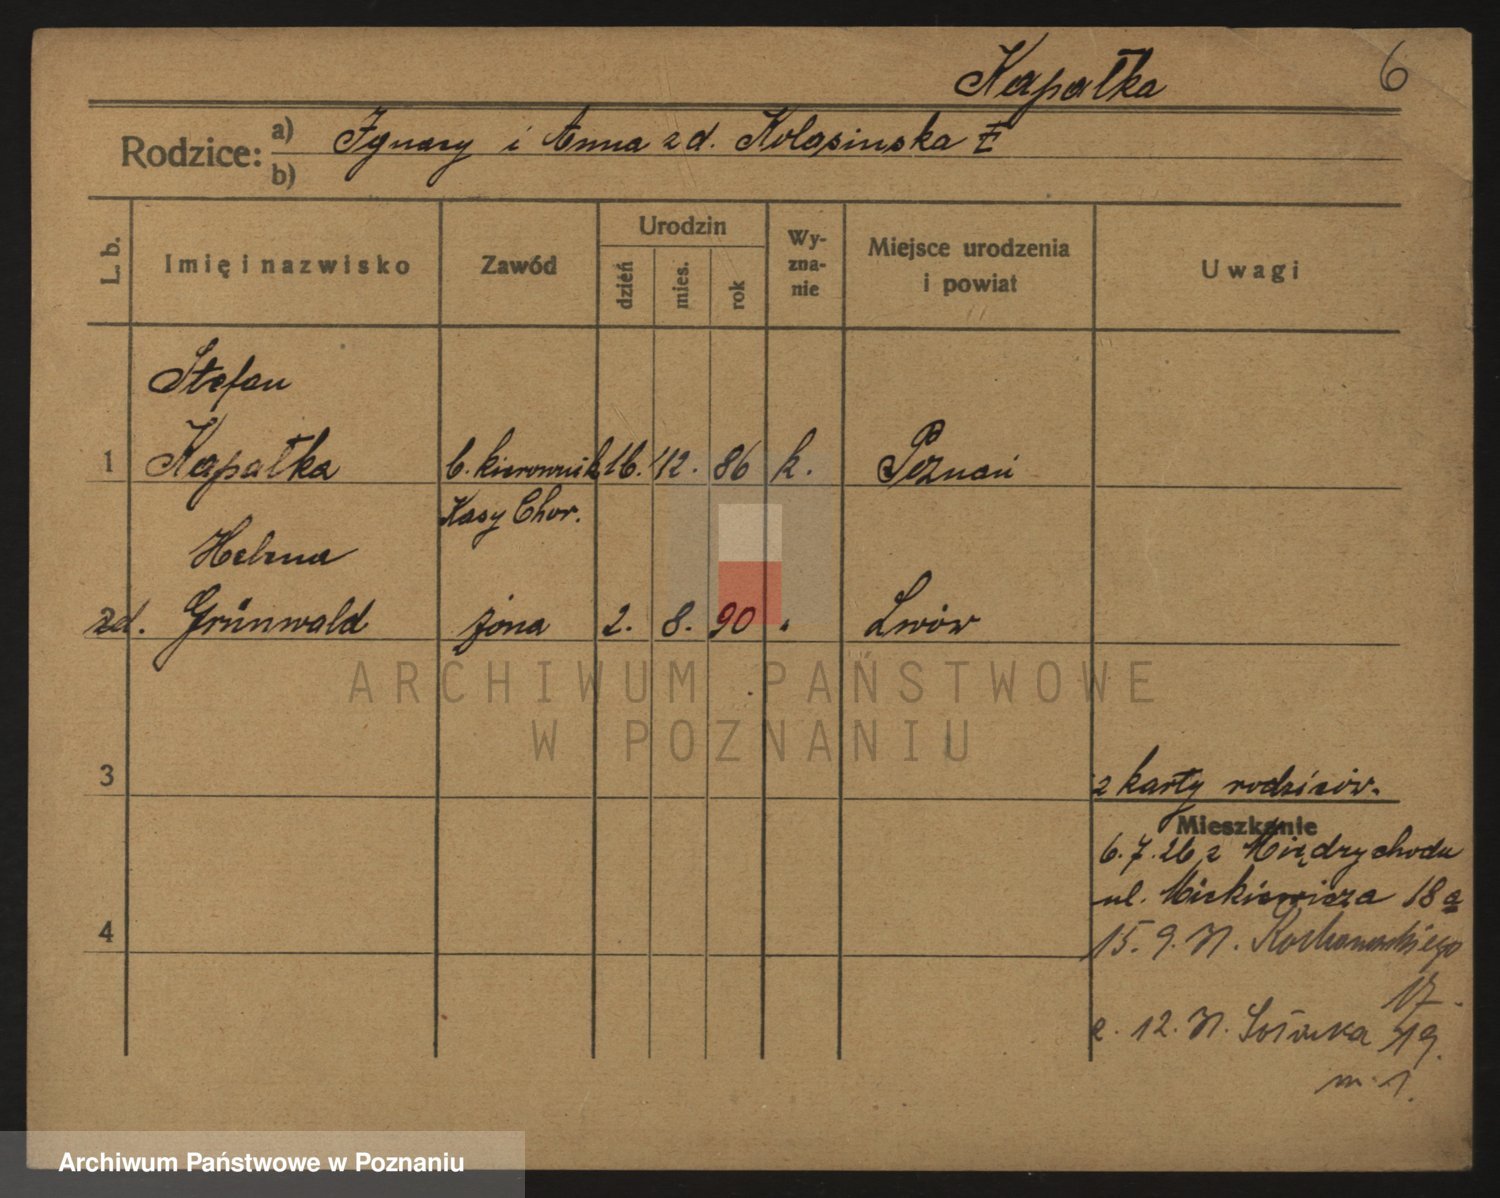 Kapałka 6
Rodzice: a) Ignacy i Anna zd. Kolasinska
b)
L. b. Imię i nazwisko Zawód Urodzin Wy-zna-nie Miejsce urodzenia i powiat Uwagi
dzień mies. rok
Stefan
1 Kapałka b. kierownik 16. 12. 86 k. Poznań
Kasy Chor.
Helena
zd. Grünwald żona 2. 8. 90 " Lwów
ARCHIWUM PAŃSTWOWE
W POZNANIU
3
z karty rodziców.
Mieszkanie
6. 7. 26 z Międzychodu
ul. Mickiewicza 18a
4
15. 9. Kochanowskiego
17.
2. 12. 19.
m. 1.
Archiwum Państwowe w Poznaniu